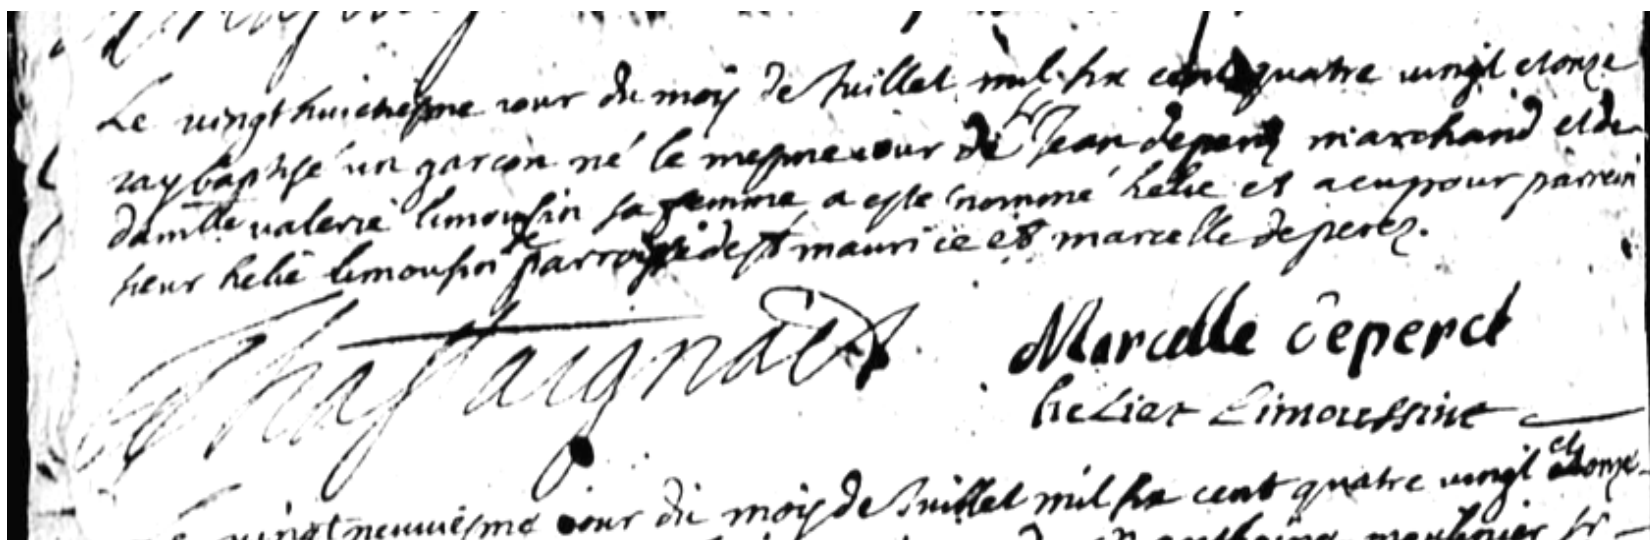 Le vingt huictiesme iour du moys de Juillet mil six cent quatre vingt et onze
iay baptisé un garcon né le mesme iour de sr Jean deperet marchand et de
damlle valerie limousin sa femme a esté nommé helie et a eu pour parrein
sieur helie limousin de parroisse de st maurice et marcelle deperez.
Marcelle deperet
helier Limoussine
vingt neuuiesme iour du moys de Juillet mil six cent quatre vingt et onze